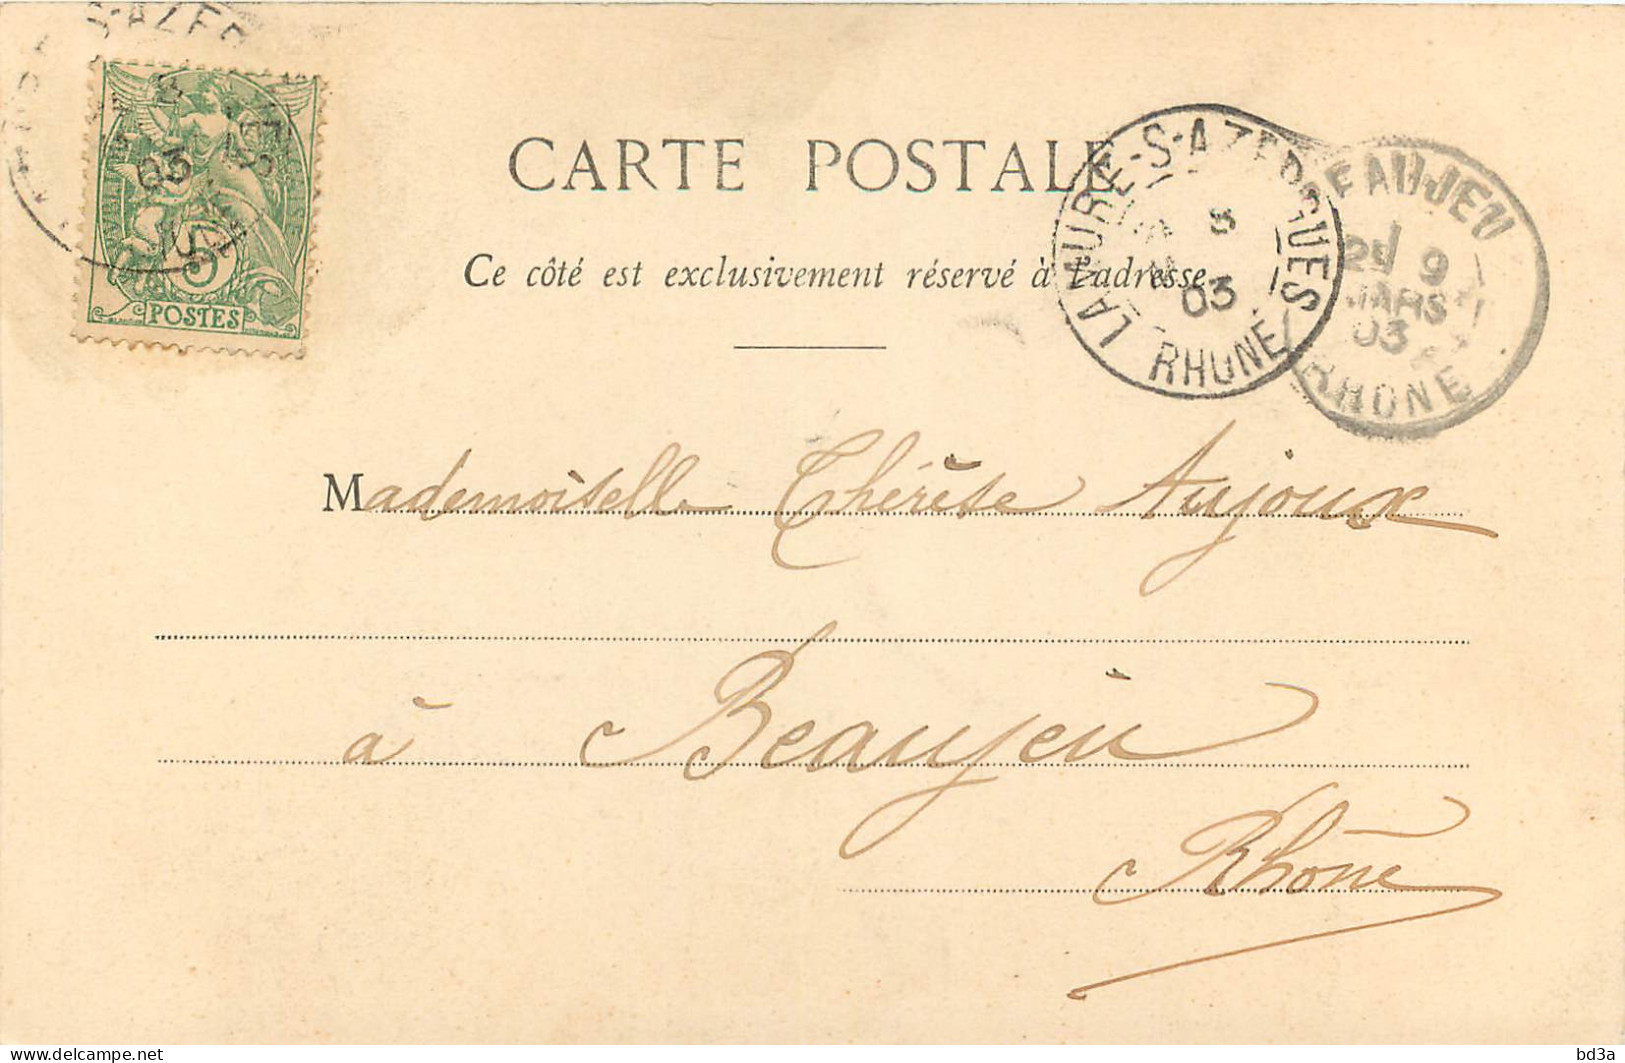 S-AZER
03
5
POSTES
CARTE POSTALE
Ce côté est exclusivement réservé à l'adresse
LAMURE-S-AZERGUES
8
03
RHONE
BEAUJEU
2E 9
MARS
03
RHONE
Mademoiselle Thérèse Aujoux
à Beaujeu
Rhône
delcampe.net
bd3a